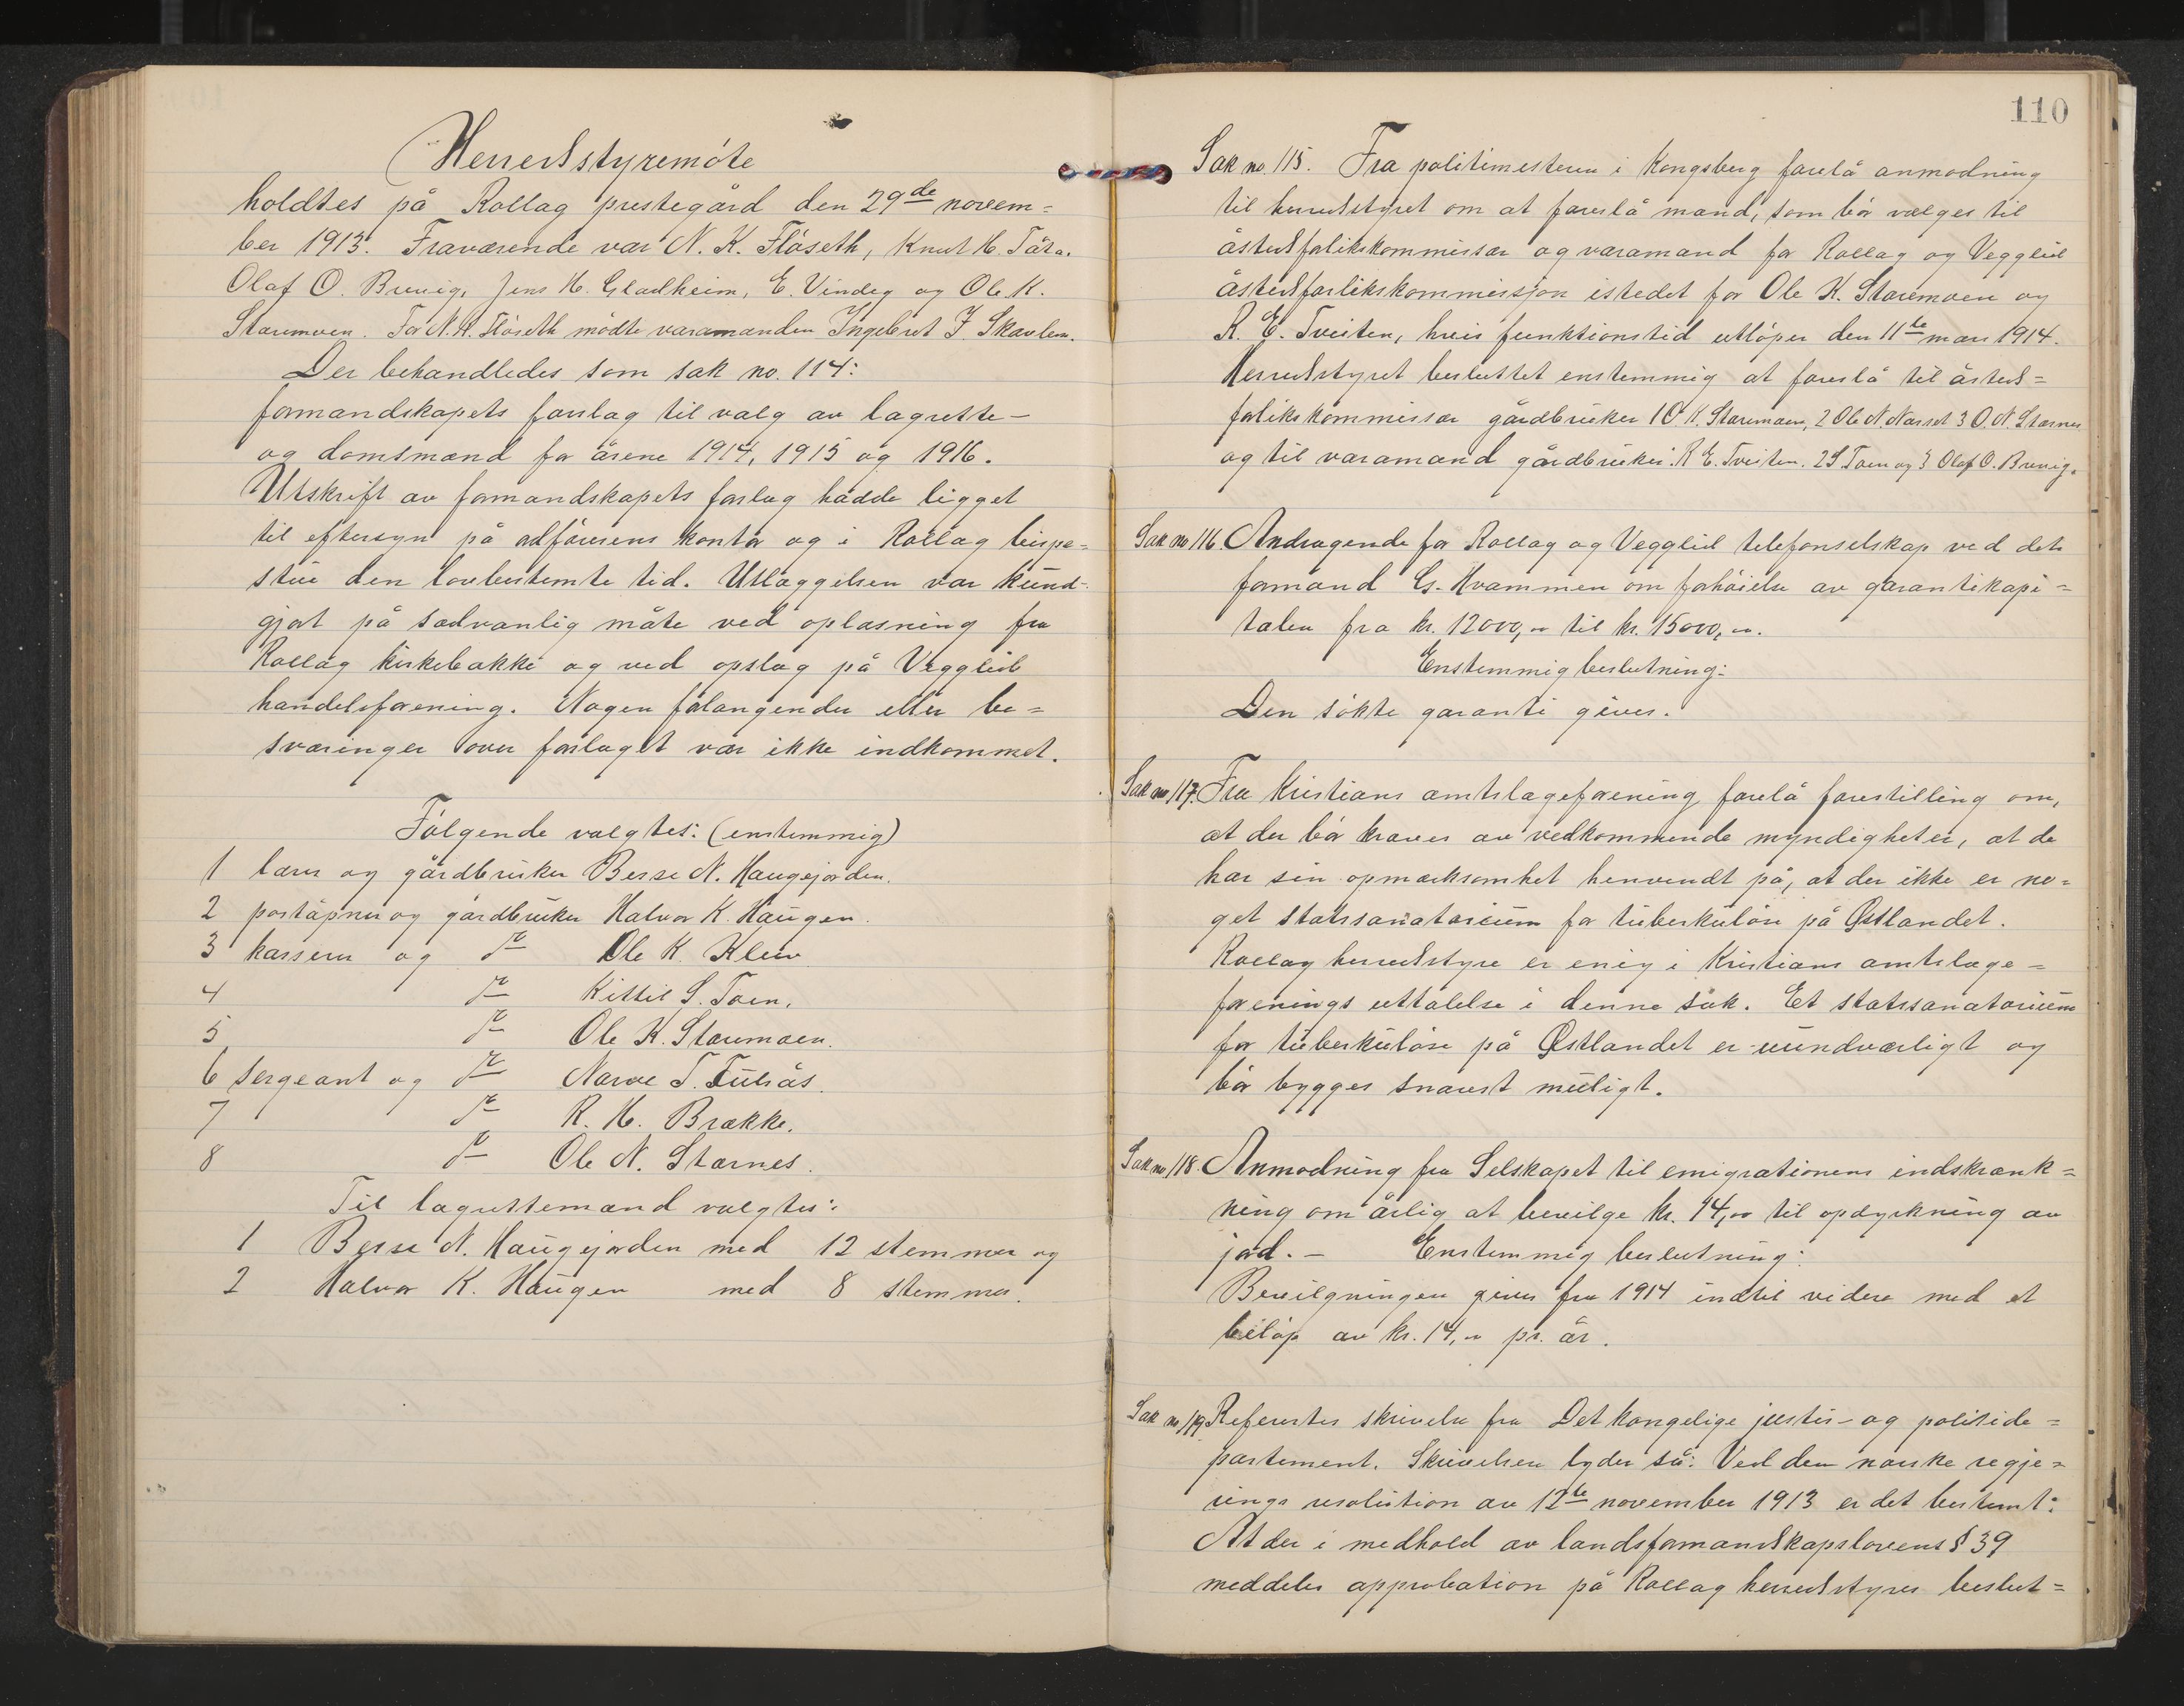 Herredsstyremöte
holdtes på Rollag prestegård den 29de novem=
ber 1913. Fraværende var N. K. Flöseth, Knut H. Tåra.
Olaf O. Bruvig, Jens H. Gladheim, E. Vindeg og Ole K.
Staremoen. For N. K. Flöseth mödte varamanden Ingebret J. Skavlem.
Der behandledes som sak no. 114:
formandskapets forslag til valg av lagrette-
og domsmænd for årene 1914, 1915 og 1916.
Utskrift av formandskapets forslag hadde ligget
til eftersyn på ordförerens kontor og i Rollag bispe=
stue den lovbestemte tid. Utlæggelsen var kund-
gjort på sædvanlig måte ved oplæsning fra
Rollag kirkebakke og ved opslag på Vegglid
handelsforening. Nogen forlangender eller be=
sværinger over forslaget var ikke indkommet.
Fölgende valgtes: (enstemmig)
1 lærer og gårdbruker Besse N. Haugejorden.
2 poståpner og gårdbruker Halvor K. Haugen.
3 kasserer og do Ole K. Kleiv
4 do Kittil S. Toen.
5 do Ole K. Staremoen.
6 sergeant og do Narve T. Fulsås.
7 do R. H. Brække.
8 do Ole N. Stærnes.
Til lagrettemænd valgtes:
1 Besse N. Haugejorden med 12 stemmer og
2 Halvor K. Haugen med 8 stemmer.
110
Sak no. 115. Fra politimesteren i Kongsberg forelå anmodning
til herredsstyret om at foreslå mænd, som bör vælges til
åstedsforlikskommissær og varamænd for Rollag og Vegglid
åstedsforlikskommissjon istedet for Ole K. Staremoen og
R. E. Tveiten, hvis funktionstid utlöper den 11te mars 1914.
Herredsstyret besluttet enstemmig at foreslå til åsteds=
forlikskommissær gårdbruker 1 O K. Staremoen, 2 Ole N. Næset 3 O. N. Stærnes
og til varamænd gårdbruker: R E. Tveiten. 2 S Toen og 3 Olaf O. Bruvig.
Sak no 116. Andragende for Rollag og Vegglid telefonselskap ved dets
formand G. Hvammen om forhöielse av garantikapi=
talen fra kr. 12000,00 til kr. 15000,00.
Enstemmig beslutning:
Den sökte garanti gives.
Sak no 117. Fra Kristians amtslægeforening forelå forestilling om,
at der bör kræves av vedkommende myndigheter, at de
har sin opmerksomhet henvendt på, at der ikke er no=
get statssanatorium for tuberkulöse på Østlandet.
Rollag herredsstyre er enig i Kristians amtslæge=
forenings uttalelse i denne sak. Et statssanatorium
for tuberkulöse på Østlandet er uundværligt og
bör bygges snarest muligt.
Sak no 118. Anmodning fra Selskapet til emigrationens indskrænk=
ning om årlig at bevilge kr. 14,00 til opdyrkning av
jord. — Enstemmig beslutning:
Bevilgningen gives fra 1914 indtil videre med et
belöp av kr. 14,00 pr. år.
Sak no 119 Refertes skrivelse fra Det kongelige justis- og politide=
partement. Skrivelsen lyder så: Ved den norske regje=
rings resolution av 12te november 1913 er det bestemt:
At der i medhold av landsformandskapslovens § 39
meddeles approbation på Rollag herredsstyres beslut=